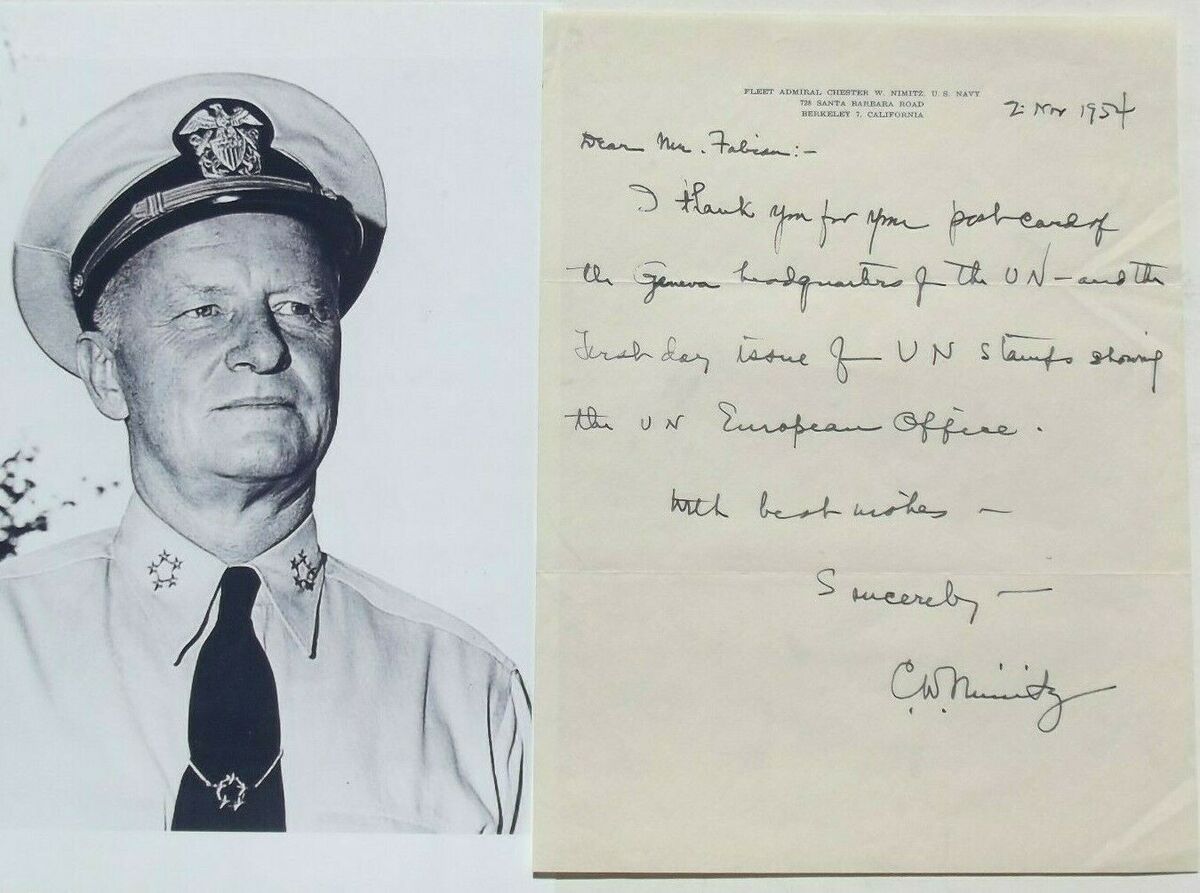 FLEET ADMIRAL CHESTER W. NIMITZ, U. S. NAVY
728 SANTA BARBARA ROAD
BERKELEY 7, CALIFORNIA
2 Nov 1954
Dear Mr. Fabian:-
I thank you for your postcard of
the Geneva headquarters of the UN - and the
First day issue of UN Stamps showing
the UN European Office.
With best wishes -
Sincerely -
C.W. Nimitz